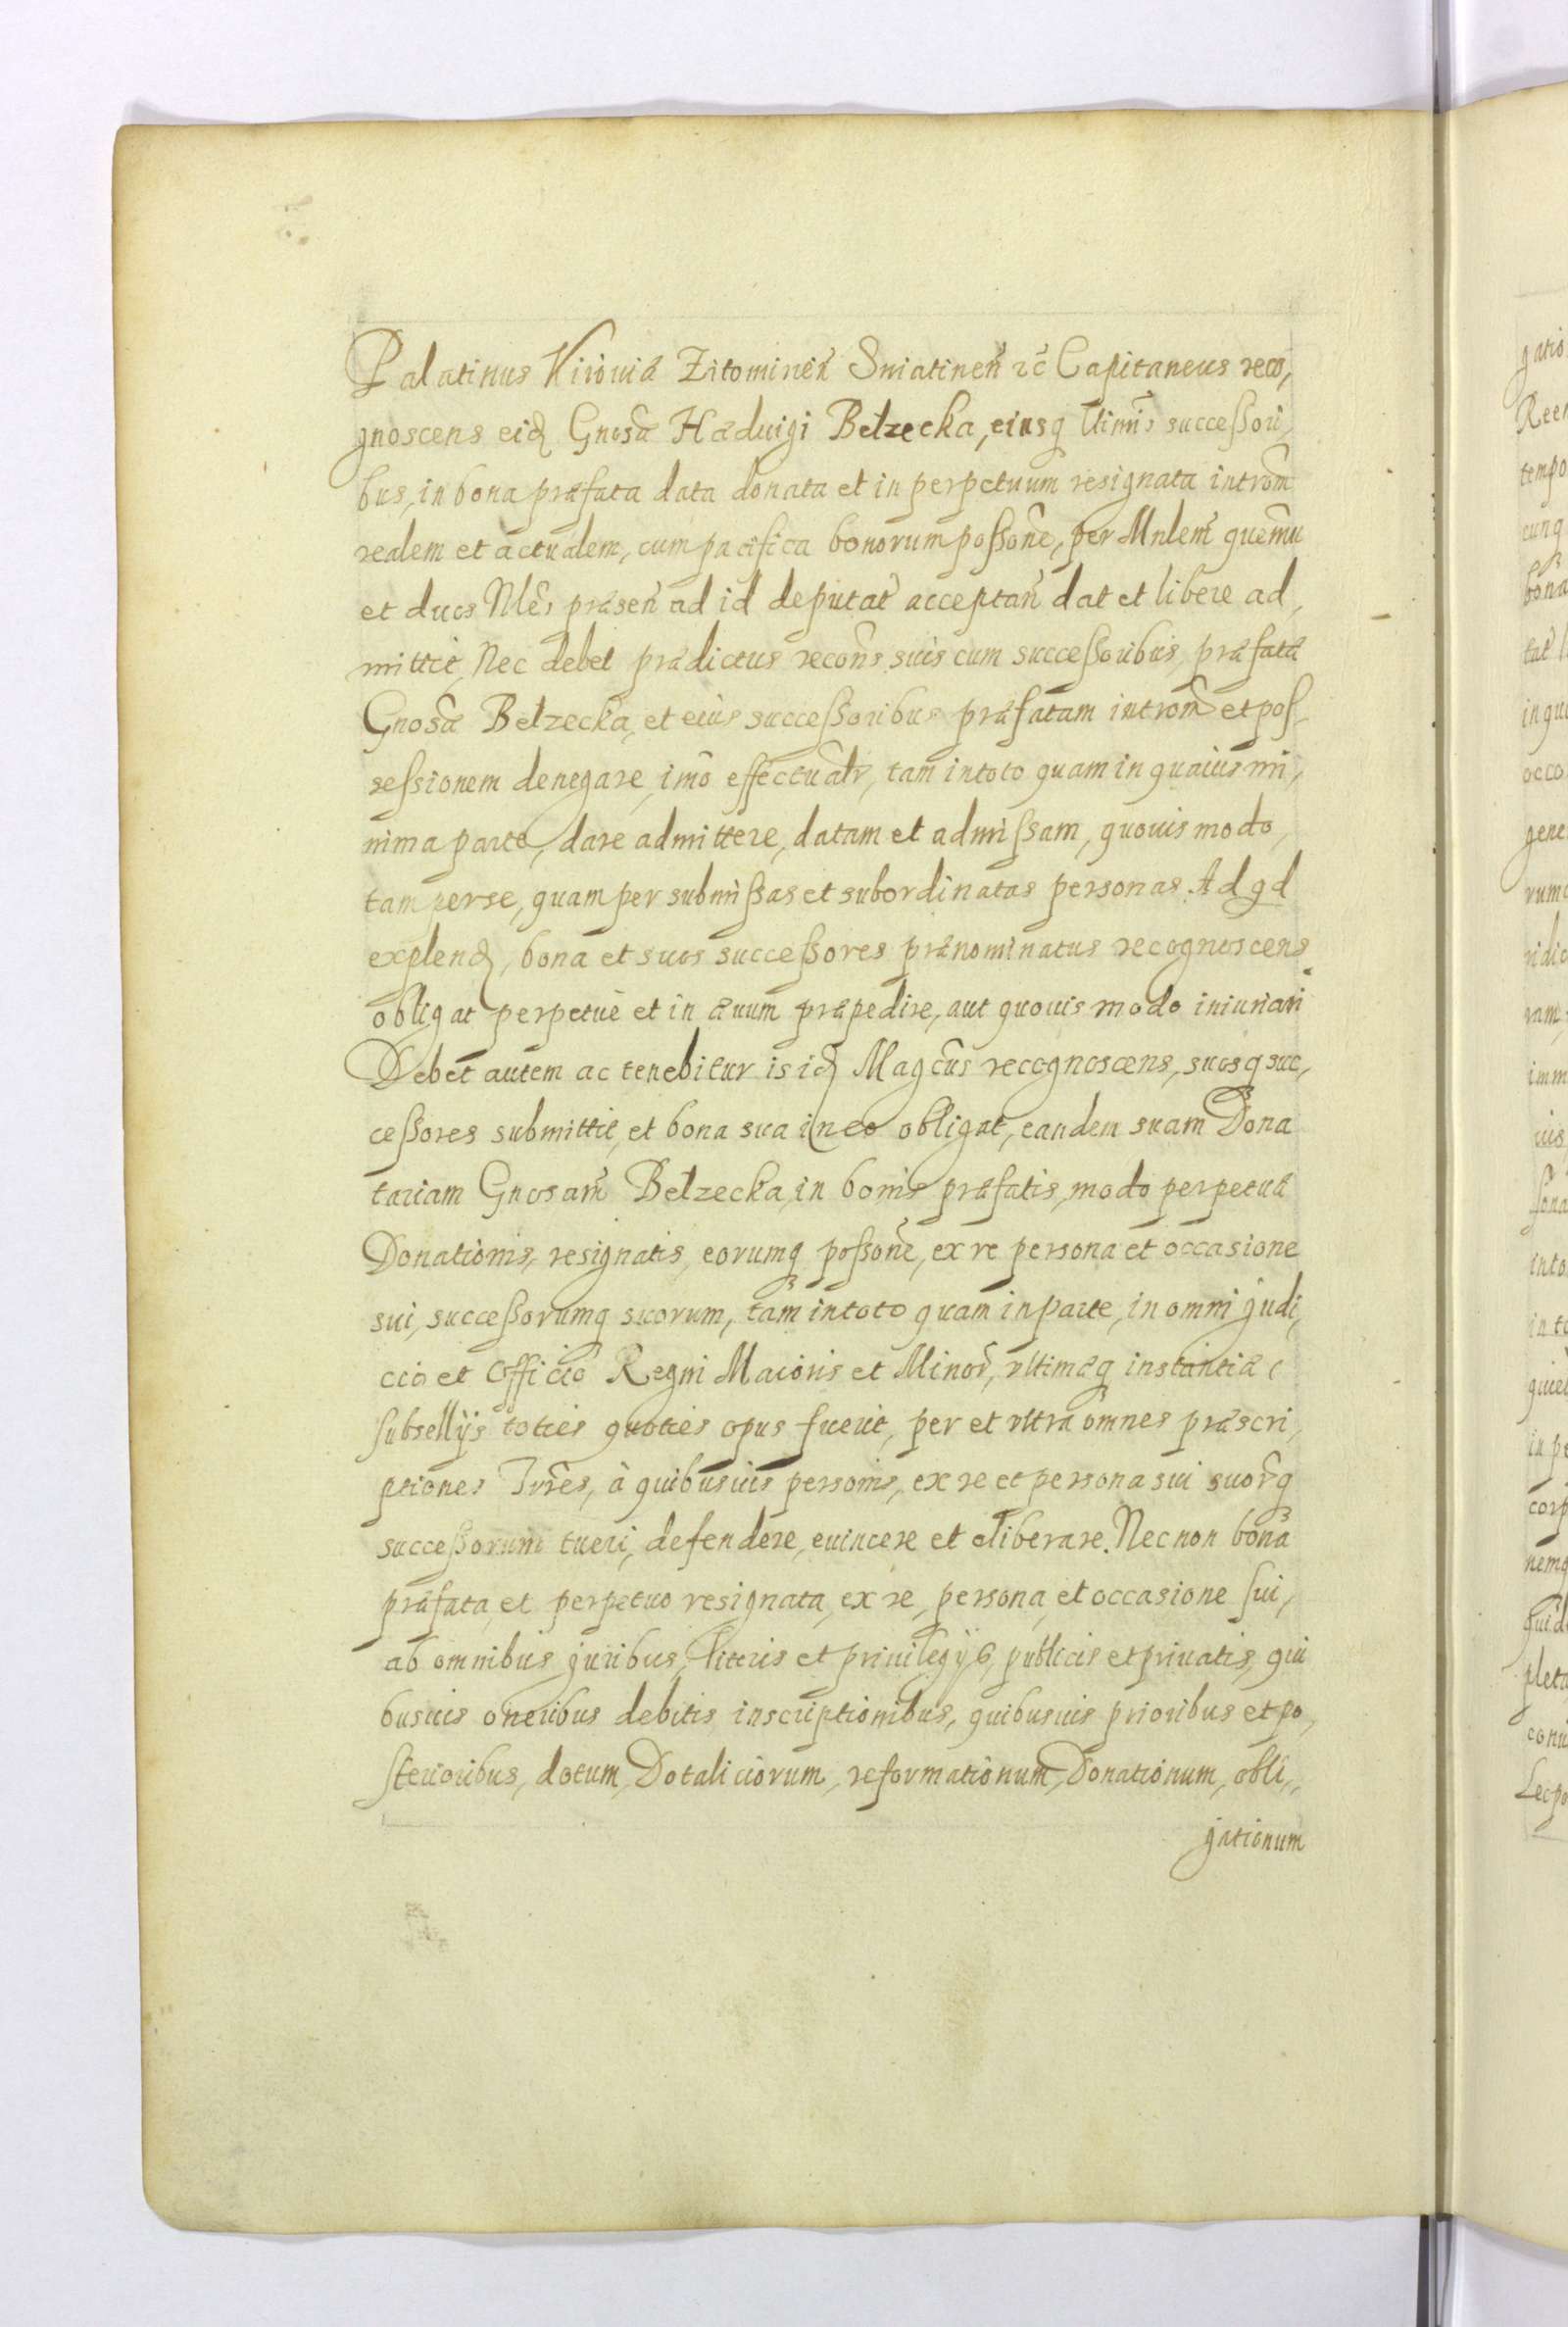 Palatinus Kiioviæ Zitominen̄ Sniatinen̄ ꝛc̄ Capitaneus reco,
gnoscens eid Gnosæ Hæduigi Belzecka, eiusq ltimis successori,
bus, in bona præfata data donata et in perpetuum resignata introm̄
realem et actualem, cum pacifica bonorum possone, per Mnlem
et duos Nles præsen̄ ad id deputat̄ acceptan̄ dat et libere ad,
mittit, Nec debet prædictus recon̄s suis cum successoribus, præfatæ
Gnosæ Belzecka, et eius successoribus præfatam introm̄ et pos,
sessionem denegare, imo effectualr, tam in toto quam in quauis mi,
nima parte, dare admittere, datam et admissam, quouis modo,
tam per se, quam per submissas et subordinatas personas. Ad qd
explend, bona et suos successores prænominatus recognoscens
obligat perpetue et in æuum præpedire, aut quouis modo iniuriari
Debet autem ac tenebitur is id Magcus recognoscens, suosq suc,
cessores submittit, et bona sua in eo obligat, eandem suam Dona
tariam Gnosam̄ Belzecka, in bonis præfatis, modo perpetuæ
Donationis, resignatis, eorumq possone, ex re persona et occasione
sui, successorumq suorum, tam in toto quam in parte, in omni judi,
cio et Officio Regni Maioris et Minor̄, vltimæq instantiæ
subsellijs toties quoties opus fuerit, per et vltra omnes præscri,
ptiones Trr̄es, à quibusuis personis, ex re et persona sui suor̄q
successorum tueri, defendere, euincere et eliberare. Nec non bona
præfata, et perpetuo resignata, ex re, persona, et occasione sui,
ab omnibus juribus, literis et priuilegijs, publicis et priuatis, qui
busuis oneribus debitis, inscriptionibus, quibusuis prioribus et po,
sterioribus, dotum, Dotaliciorum, reformationum, Donationum, obli,,
gationum